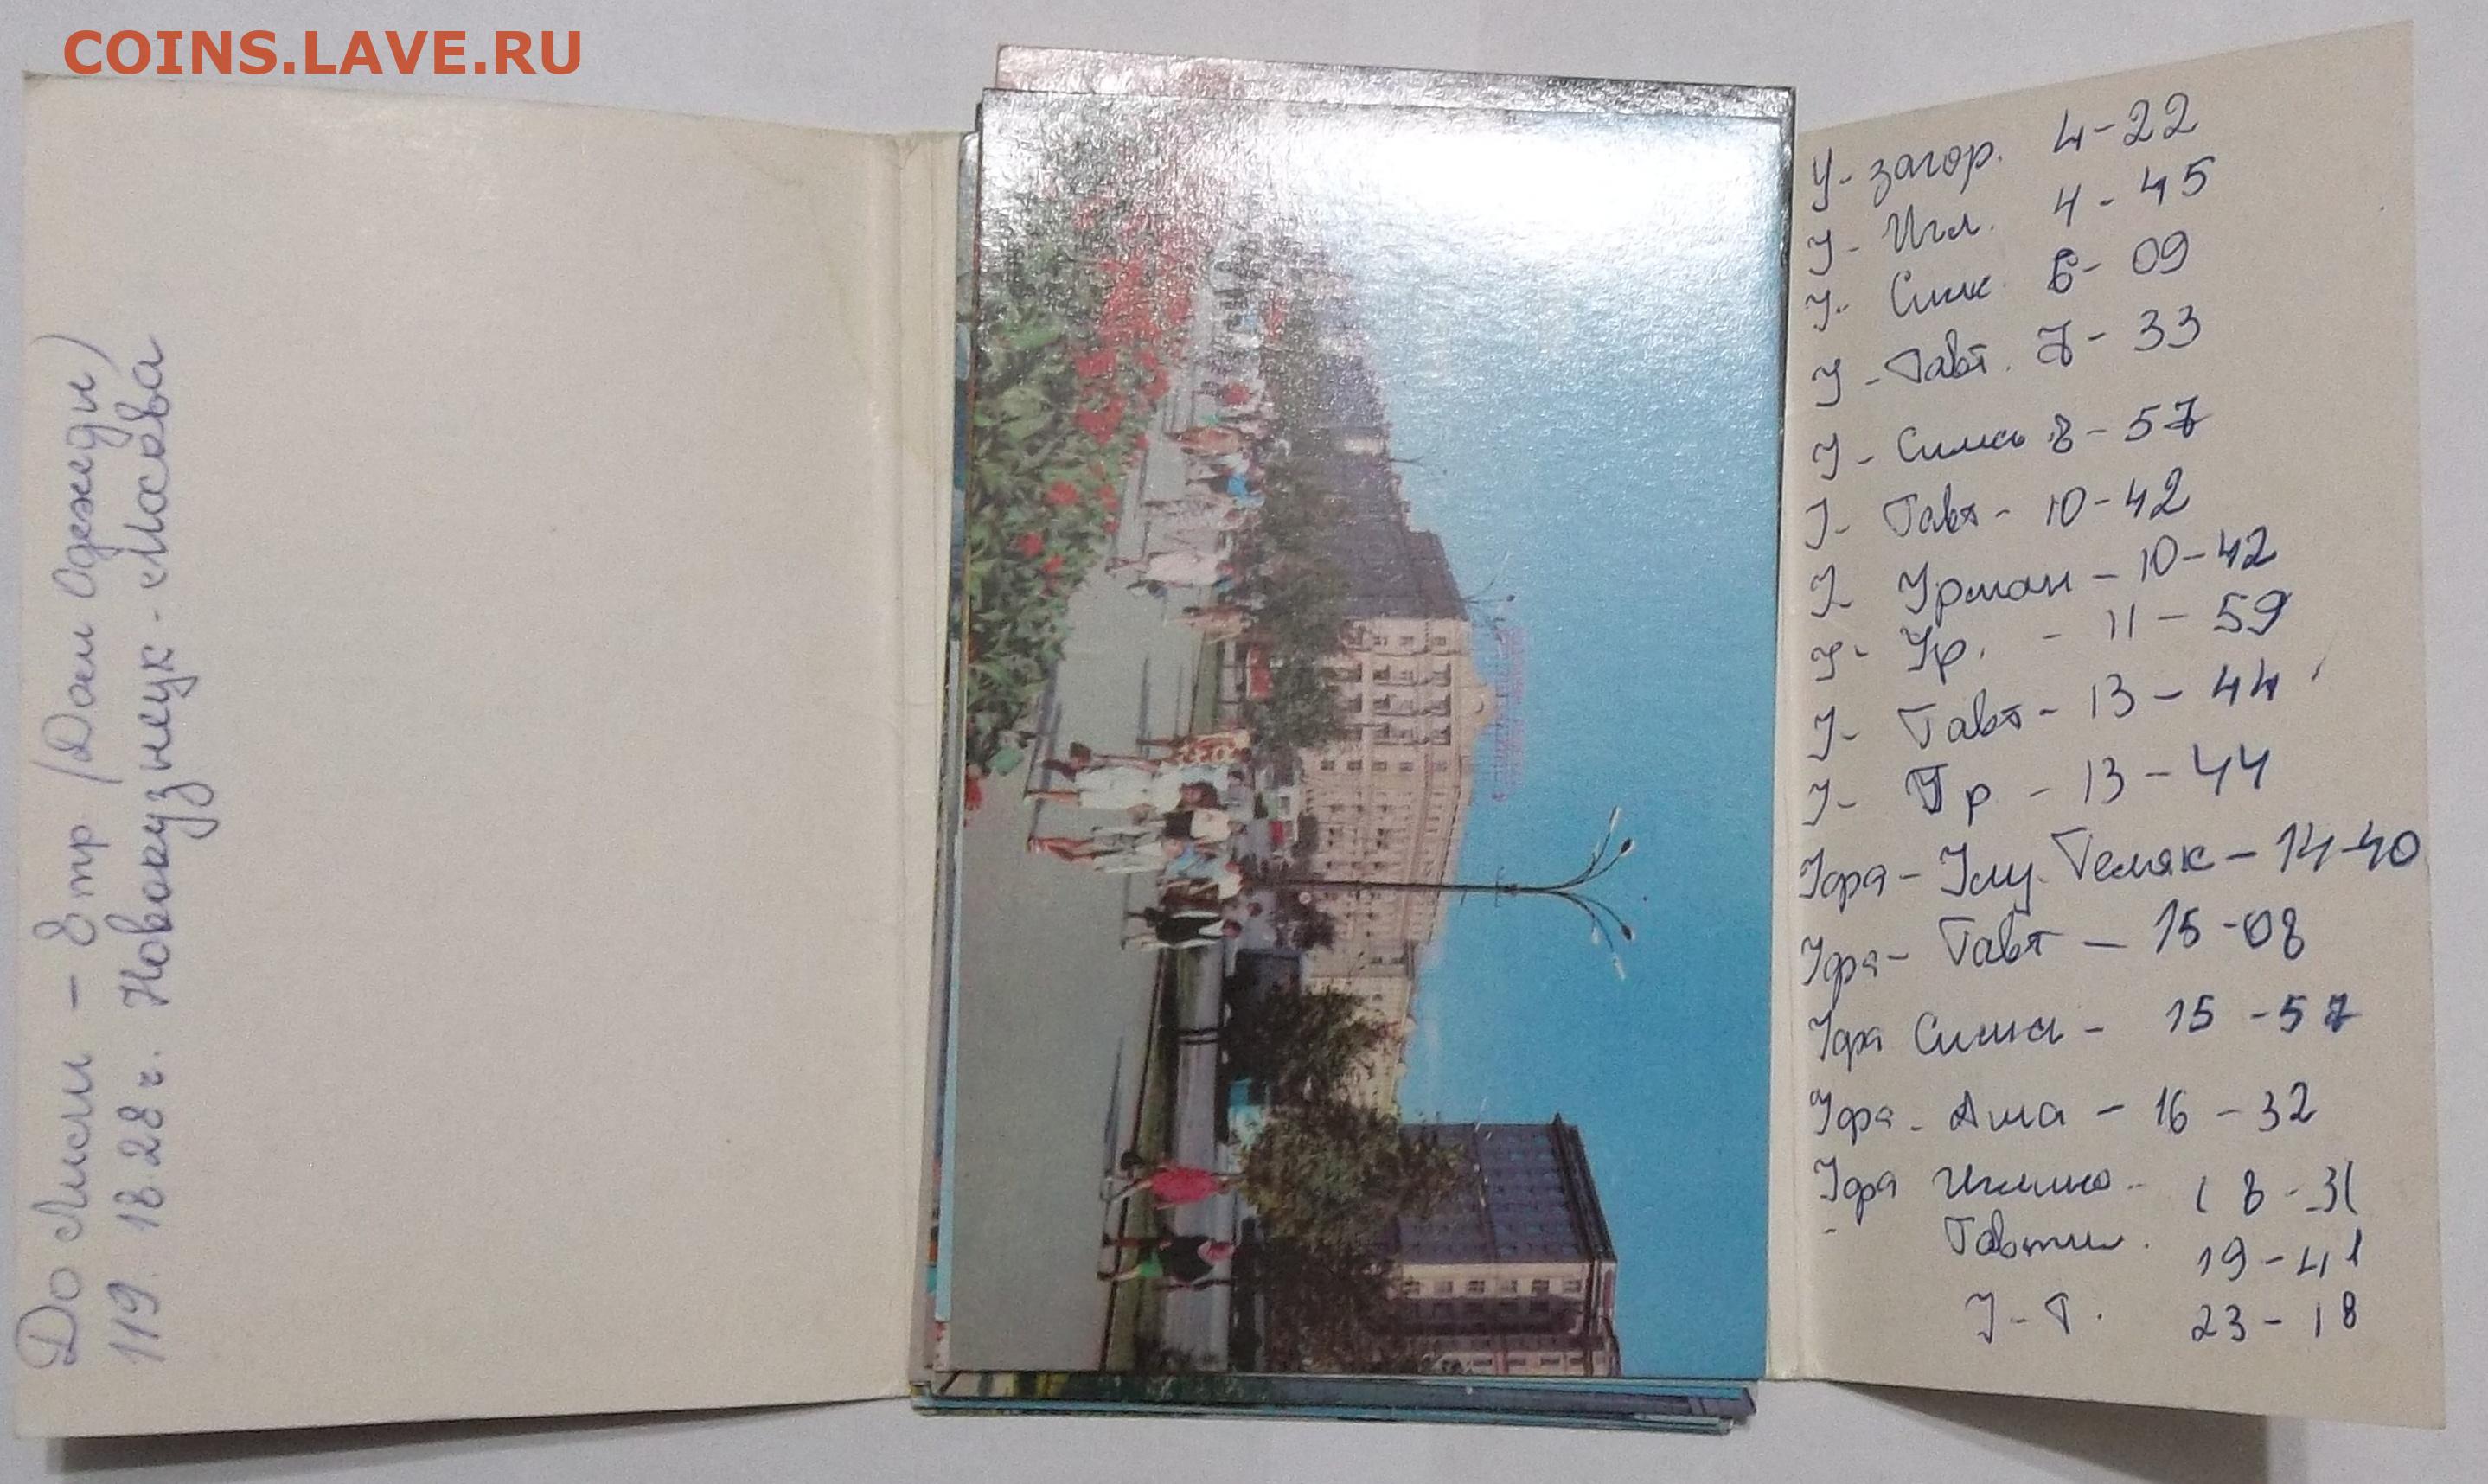 COINS.LAVE.RU
До Лисы - 8 тр /Дом Одежды)
119. 18.28 г. Новокузнецк - Москва
У- загор. 4-22
У- Игл. 4-45
У- Симс. 6-09
У- Тавт. 7-33
У- Симсь 8-57
У- Тавт - 10-42
У- Урман - 10-42
У- Ур. - 11-59
У- Тавт - 13-44
У- Ур - 13-44
Уфа - Улу. Теляк - 14-40
Уфа - Тавт - 15-08
Уфа Симск - 15-57
Уфа - Аша - 16-32
Уфа Иглино - 18-31
- Тавтим. 19-41
У-Т. 23-18